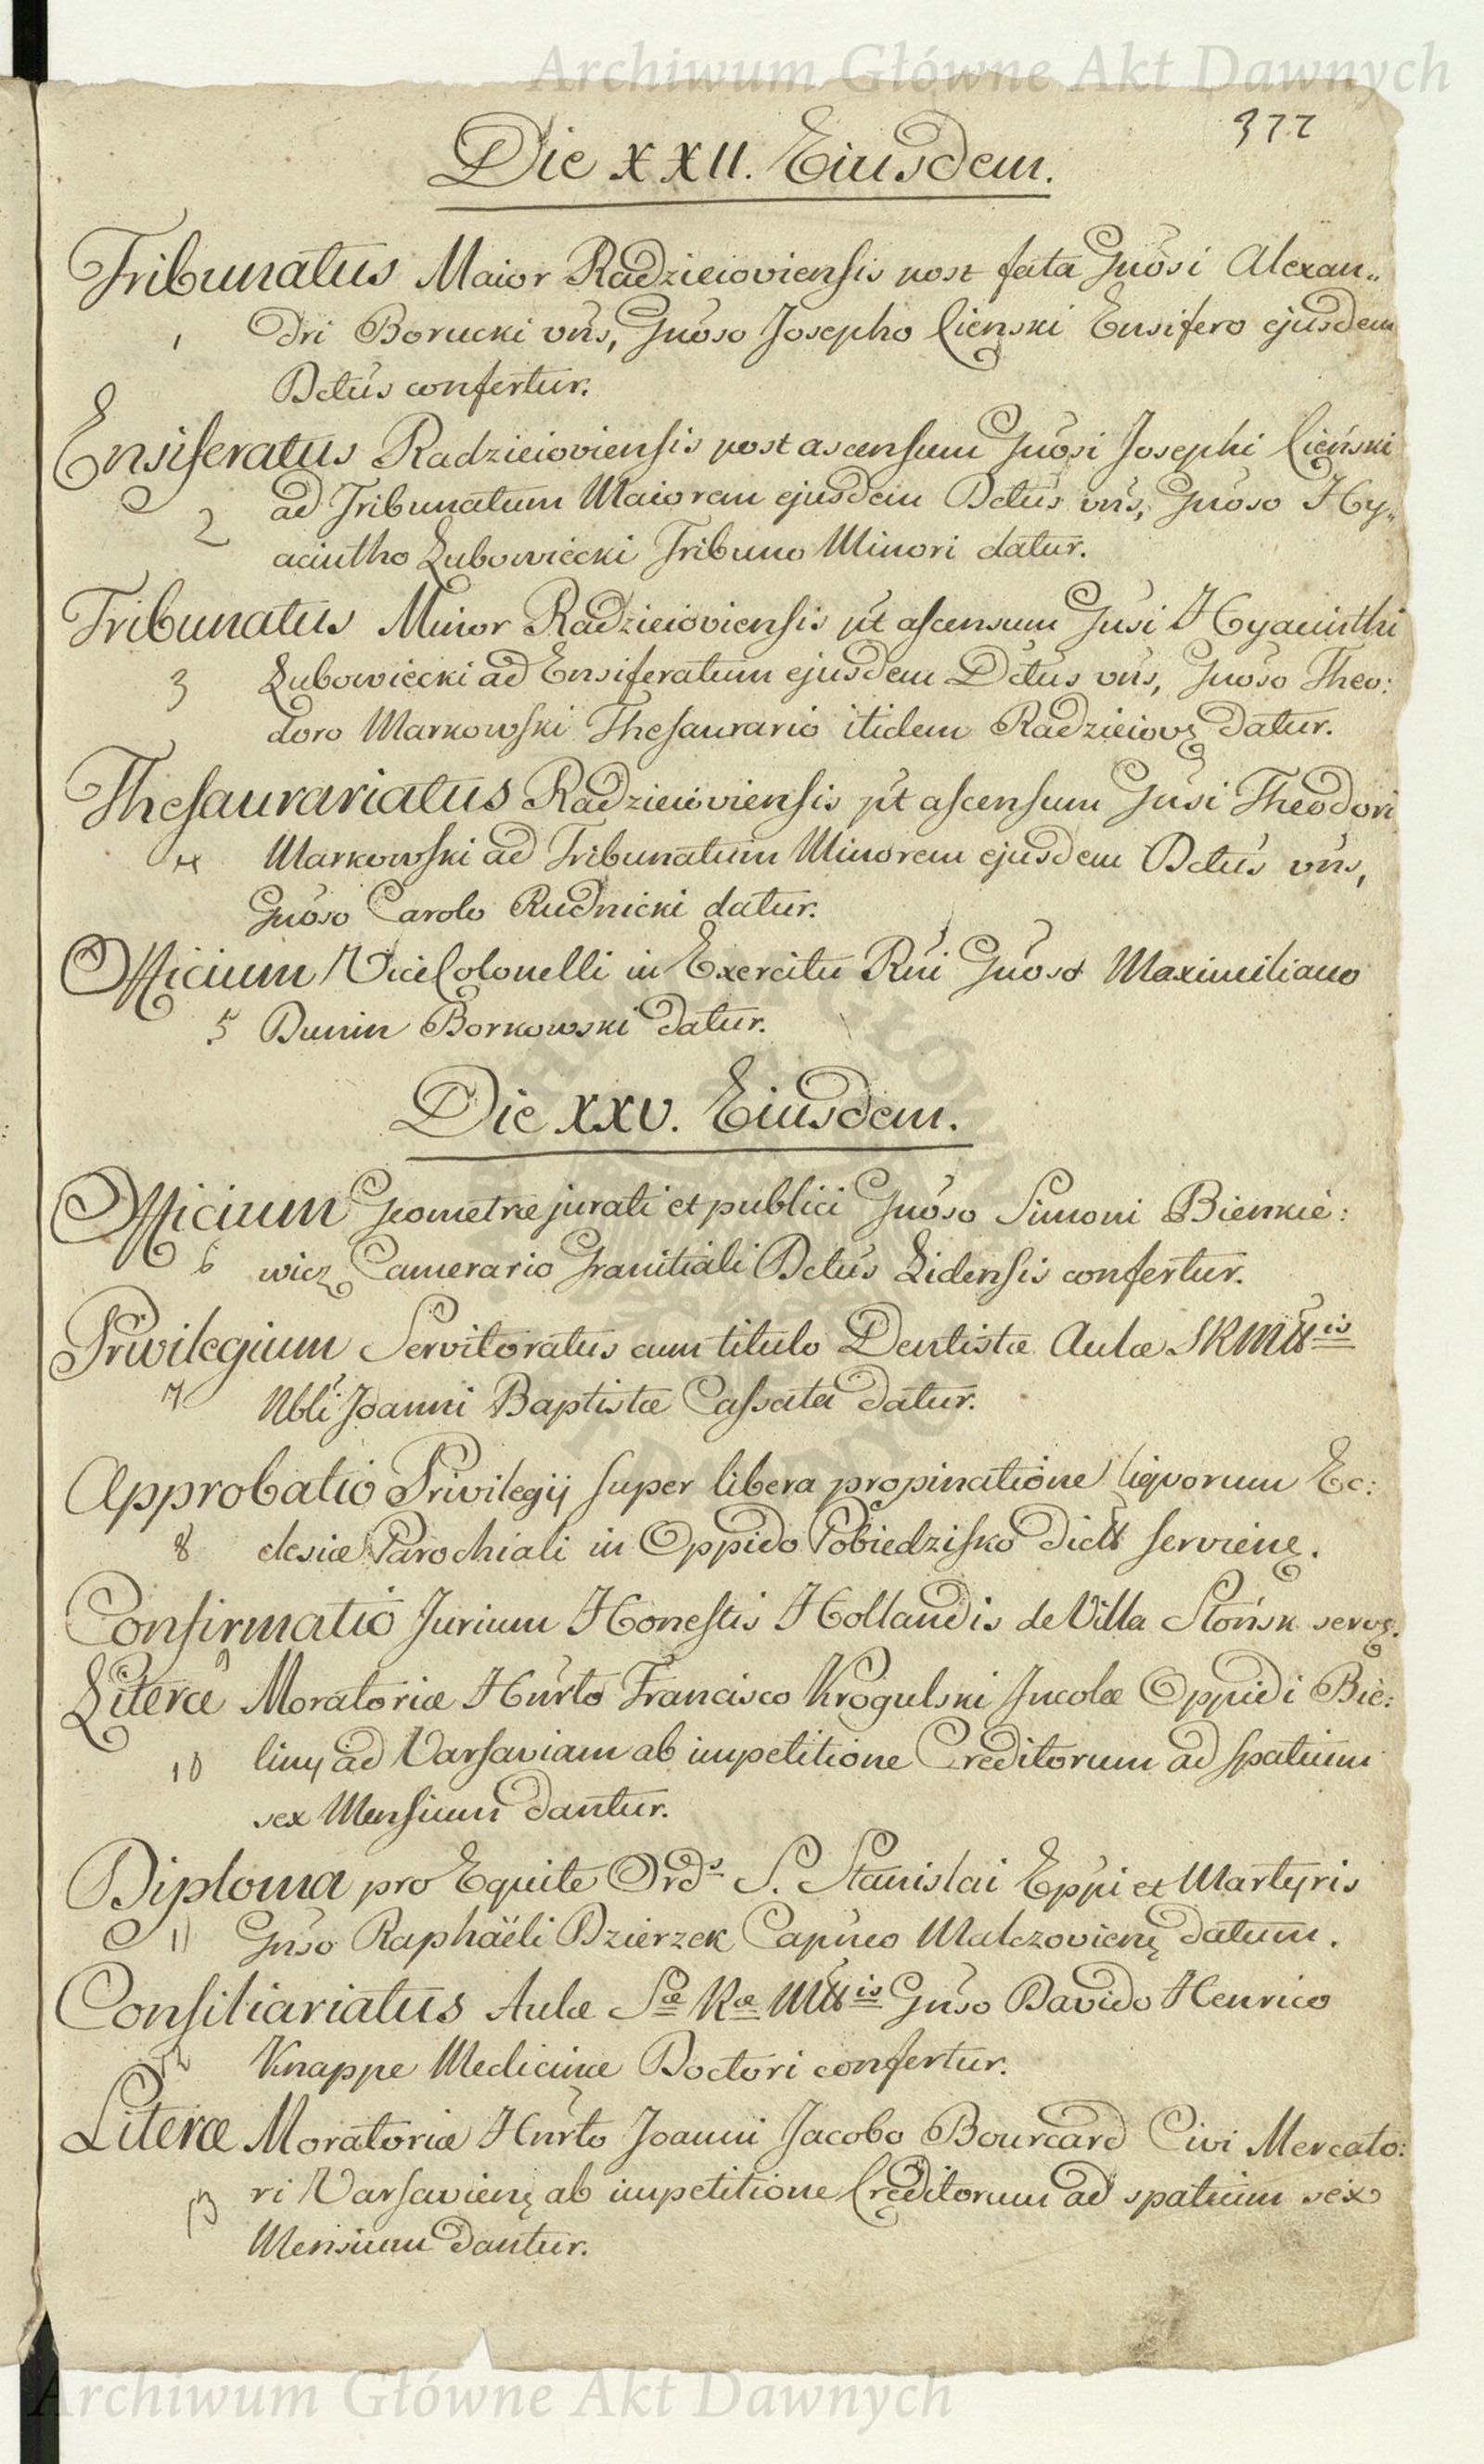 Archiwum Główne Akt Dawnych
377
Die XXII. Eiusdem.
Tribunatus Maior Radzieioviensis post fata Gnosi Alexan„
1 dri Borucki vns, Gnoso Josepho Cienski Ensifero ejusdem
Dctus confertur.
Ensiferatus Radzieioviensis post ascensum Gnosi Josephi Cieński
ad Tribunatum Maiorem ejusdem Dctus vns, Gnoso Hy„
2 acintho Lubowiecki Tribuno Minori datur.
Tribunatus Minor Radzieioviensis pt ascensum Gnsi Hyacinthi
3 Lubowiecki ad Ensiferatum ejusdem Dctus vns, Gnoso Theo:
doro Markowski Thesaurario itidem Radzieiovę datur.
Thesaurariatus Radzieioviensis pt ascensum Gnsi Theodori
4 Markowski ad Tribunatum Minorem ejusdem Dctus vns,
Gnoso Carolo Rudnicki datur.
Officium ViceColonelli in Exercitu Rni Gnoso Maximiliano
5 Dunin Borkowski datur.
Die XXV. Eiusdem.
Officium Geometræ jurati et publici Gnoso Simoni Bienkie:
6 wicz Camerario Granitiali Dctus Lidensis confertur.
Privilegium Servitoratus cum titulo Dentistæ Aulæ SRMttis
7 Nbli Joanni Baptistæ Cassata datur.
Approbatio Privilegij super libera propinatione liquorum Ec:
8 clesiæ Parochiali in Oppido Pobiedzisko dictt servienę.
Confirmatio Jurium Honestis Hollandis de Villa Słońsk servę.
9
Literæ Moratoriæ Hnrto Francisco Krogulski Incolæ Oppidi Bie:
10 liny ad Varsaviam ab impetitione Creditorum ad spatium
sex Mensium dantur.
Diploma pro Equite Ords S. Stanislai Eppi et Martyris
11 Gnso Raphaëli Dzierzek Capneo Malczovienę datum.
Consiliariatus Aulæ Sæ Ræ Mttis Gnso Davido Henrico
12 Knappe Medicinæ Doctori confertur.
Literæ Moratoriæ Hnrto Joanni Jacobo Bourcard Civi Mercato:
13 ri Varsavienę ab impetitione Creditorum ad spatium sex
Mensium dantur.
Archiwum Główne Akt Dawnych